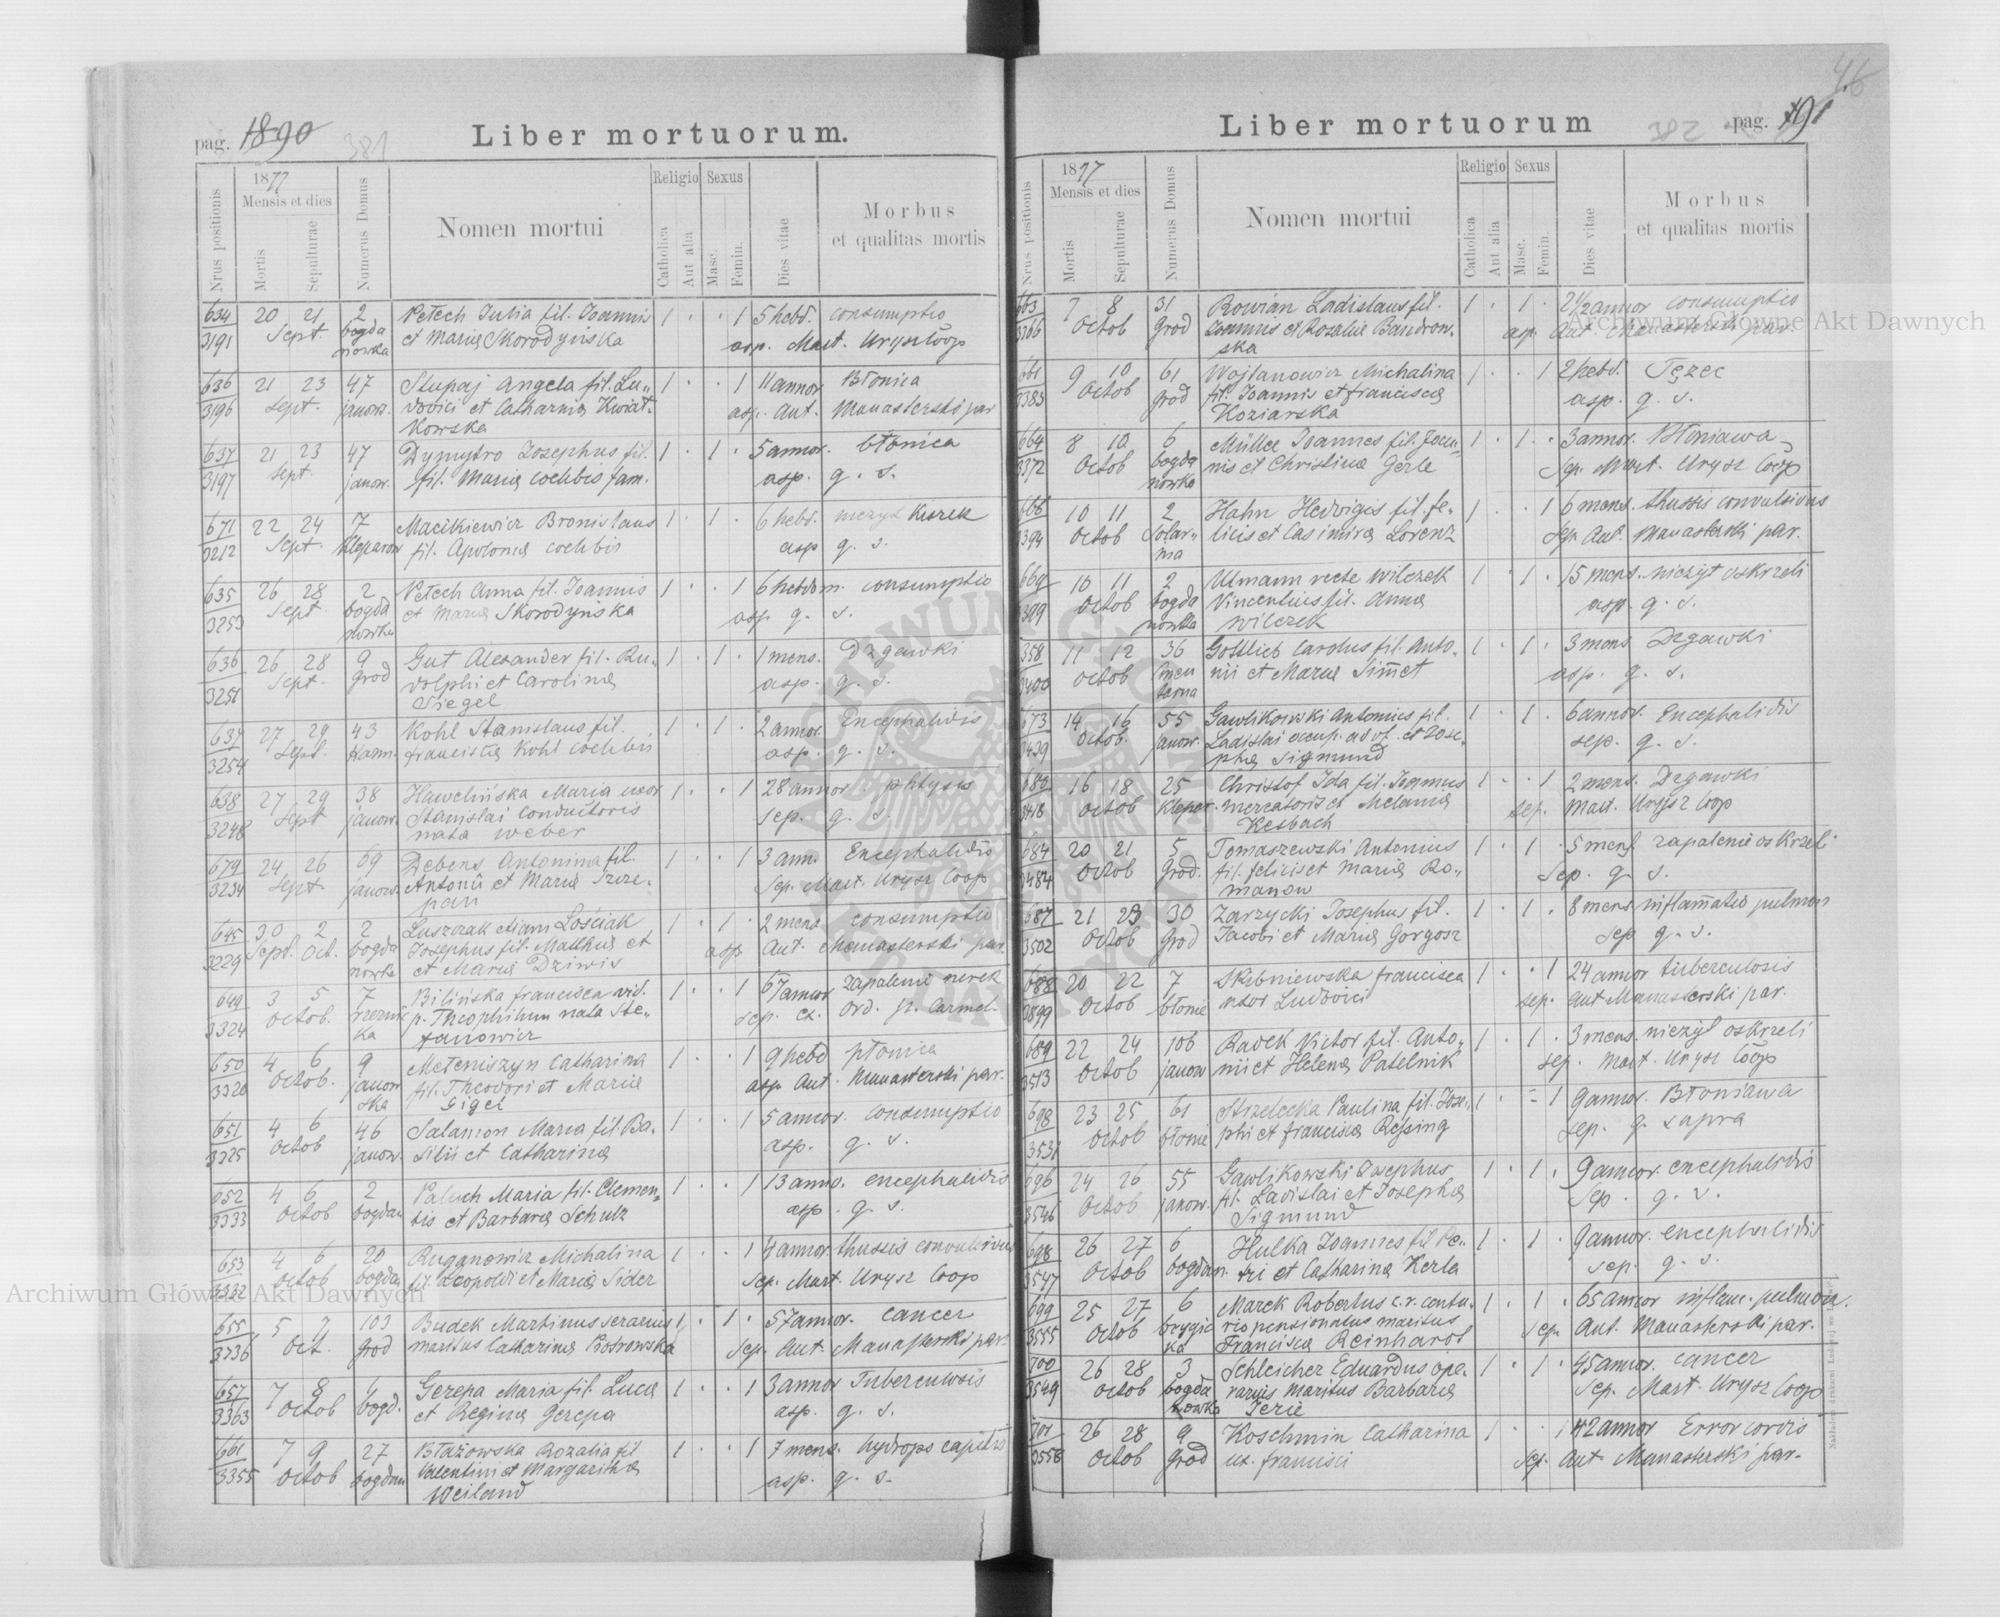 pag. 1890
Liber mortuorum.
Nrus positionis
1877
Mensis et dies
Mortis
Sepulturae
Numerus Domus
Nomen mortui
Religio
Catholica
Aut alia
Sexus
Masc.
Femin.
Dies vitae
Morbus
et qualitas mortis
634 20 21 2 Petech Julia fil. Joannis 1 . . 1 5 hebd. consumptio
3191 Sept. bogda nowka et Mariae Skorodyńska asp. Mart. Urysz Coop
636 21 23 47 Stupaj Angela fil. Lu- 1 . . 1 11 annor Błonica
3196 Sept. janow. dovici et Catharina Kwiat- asp. Ant. Manasterski par
kowska
637 21 23 47 Dymytro Josephus fil. 1 . 1 . 5 annor. błonica
3197 Sept. janow. fil. Maria coelibis fam. asp. q. s.
671 22 24 17 Macikiewicz Bronislaus 1 . 1 . 6 hebd.
3212 Sept. kleparow fil. Apolonia coelibis asp q. s.
635 26 28 2 Petech Anna fil. Joannis 1 . . 1 6 hebdom. consumptio
3253 Sept. bogda nowka et Maria Skorodyńska asp q. s.
636 26 28 9 Gut Alexander fil. Ru- 1 . 1 . 1 mens. Drgawki
3251 Sept. Grod dolphi et Carolina asp. q. s.
Siegel
637 27 29 43 Kohl Stanislaus fil. 1 . 1 . 2 annor. Encephalidis
3254 Sept. francisca Kohl coelibis asp. q. s.
638 27 29 38 Hawelińska Maria uxor 1 . . 1 28 annor. phtysis
3248 Sept janow. Stanislai conductoris sep. q. s.
nata weber
679 24 26 69 Debens Antonina fil. 1 . . 1 3 ann. Encephalidis
3234 Sept. janow. Antonii et Maria Szcze- Sep. Mart. Urysz Coop
pan
645 30 2 2 Luszczak etiam Łościak 1 . 1 . 2 mens consumptio
3229 Sept. Oct. bogda nowka Josephus fil. Matthia et asp Ant. Manasterski par
et Maria Dziwis
649 3 5 7 Bilińska francisca vid. 1 . . 1 67 annor zapalenie nerek
3324 Octob. p. Theophilum nata Ste- sep. ex. Ord. fr. Carmel.
fanowicz
650 4 6 9 Meteniszyn Catharina 1 . . 1 9 hebd płonica
3320 Octob. janow ska fil. Theodori et Maria asp. Ant. Manasterski par.
Gigel
651 4 6 46 Salamon Maria fil. Ba- 1 . . 1 5 annor. consumptio
3325 Octob janow. silii et Catharina asp. q. s.
652 4 6 2 Paluch Maria fil. Clemen- 1 . . 1 13 anno. encephalidis
3333 Octob bogdan tis et Barbara Schulz asp. q. s.
653 4 6 20 Ruganowicz Michalina 1 . . 1 4 annor. thussis convulsivus
3332 Octob bogdan fil. Leopoldi et Maria Sider Sep. Mart. Urysz Coop
655 5 7 103 Budek Martinus 1 . 1 . 57 annor. cancer
3336 Oct. Grod maritus Catharina Piotrowska Sep. Ant. Manasterski par.
657 7 8 1 Gerepa Maria fil. Luca 1 . . 1 3 annor Tuberculosis
3363 Octob bogd. et Regina Gerepa asp. q. s.
661 7 9 27 Błażowska Rozalia fil 1 . . 1 7 mens. hydrops capitis
3355 Octob bogdan Valentini et Margaritha asp. q. s.
Weiland
46
Liber mortuorum
pag. 191
Nrus positionis
1877
Mensis et dies
Mortis
Sepulturae
Numerus Domus
Nomen mortui
Religio
Catholica
Aut alia
Sexus
Masc.
Femin.
Dies vitae
Morbus
et qualitas mortis
663 7 8 31 Rowian Ladislaus fil. 1 . 1 . 2 1/2 annor consumptio
3366 Octob Grod Joannis et Rozalia Bandrow- asp. Ant. Manasterski par.
ska
661 9 10 61 Wojtanowicz Michalina 1 . . 1 2 hebd. Tężec
3383 Octob Grod fil. Joannis et francisca asp. q. s.
Koziarska
664 8 10 6 Müller Joannes fil. Joan- 1 . 1 . 3 annor. Błoniawa
3372 Octob bogda nowka nis et Christina Gerle Sep. Mart. Urysz Coop
668 10 11 2 Hahn Hedvigis fil. fe- 1 . . 1 6 mens. thussis convulsivus
3394 Octob Solar- nia licis et Casimira Lorenz Sep. Ant. Manasterski par.
669 10 11 2 Ulmann recte Wilczek 1 . 1 . 15 mens. nieżyt oskrzeli
3399 Octob bogda nowka Vincentius fil. Anna asp. q. s.
Wilczek
358 11 12 36 Gottlieb Carolus fil. Anto- 1 . 1 . 3 mens Drgawki
3400 Octob cmen tarna nii et Maria Sim̄et asp. q. s.
673 14 16 55 Gawlikowski Antonius fil. 1 . 1 . 6 annor. Encephalidis
3439 Octob. janow. Ladislai et Jose- sep. q. s.
pha Sigmund
680 16 18 25 Christof Ida fil. Joannis 1 . . 1 2 mens. Drgawki
3418 Octob Kleper. mercatoris et Melania sep. Mart. Urysz Coop
Kesbach
684 20 21 5 Tomaszewski Antonius 1 . 1 . 5 mens zapalenie oskrzeli
3484 Octob Grod. fil. felicis et Maria Ro- Sep. q s.
manow
687 21 23 30 Zarzycki Josephus fil. 1 . 1 . 8 mens inflam̄atio pulmon
3502 Octob Grod Jacobi et Maria Gorgosz sep q. s.
688 20 22 7 Skibniewska francisca 1 . . 1 24 annor tuberculosis
3499 Octob błonie uxor Ludovici sep. Ant Manasterski par.
689 22 24 106 Radek Victor fil. Anto- 1 . 1 . 3 mens. nieżyt oskrzeli
3513 Octob janow nii et Helena Patelnik sep. Mart. Urysz Coop
698 23 25 61 Strzelecka Paulina fil. Jose- 1 . - 1 9 annor. Błoniawa
3531 Octob błonie phi et francisca Rejsing sep. q. supra
696 24 26 55 Gawlikowski Josephus 1 . 1 . 9 annor. encephalidis
3546 Octob janow. fil. Ladislai et Josepha Sep. q. s.
Sigmund
698 26 27 6 Hulka Joannes fil Pe- 1 . 1 . 9 annor. encephalidis
3547 Octob bogdan. tri et Catharina Kerla sep. q. s.
699 25 27 6 Marek Robertus c. r. centu- 1 . 1 . 65 annor inflam. pulmon.
3555 Octob rio pensionatus maritus sep. Ant. Manasterski par.
Francisca Reinharol
700 26 28 3 Schleicher Eduardus ope- 1 . 1 . 45 annor. cancer
3549 Octob bogda nowka rarius maritus Barbara Sep. Mart. Urysz Coop
Jerie
701 26 28 9 Koschmin Catharina 1 . . 1 42 annor Error cordis
3558 Octob Grod ux. francisci sep. Ant. Manasterski par.
Archiwum Główne Akt Dawnych
Archiwum Główne Akt Dawnych
ARCHIWUM GŁÓWNE AKT DAWNYCH